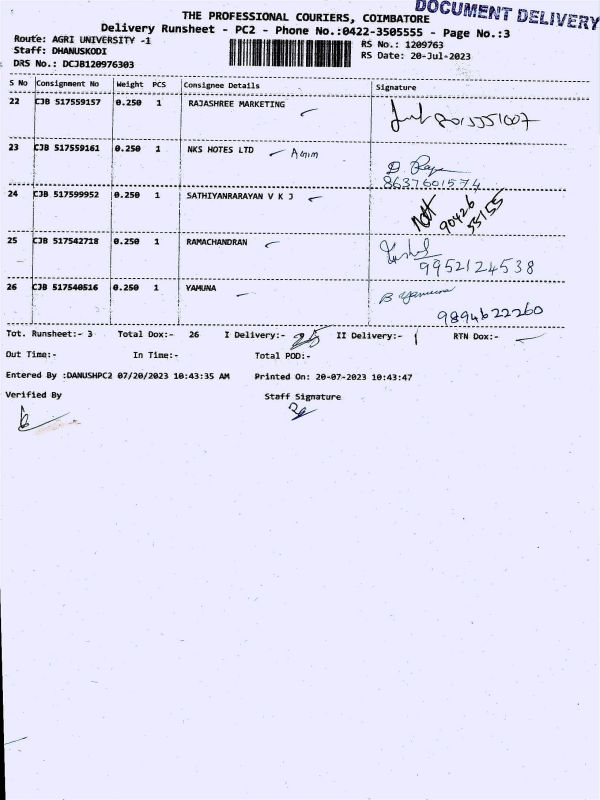 DOCUMENT DELIVERY
THE PROFESSIONAL COURIERS, COIMBATORE
Delivery Runsheet - PC2 - Phone No.:0422-3505555 - Page No.:3
Route: AGRI UNIVERSITY -1
RS No.: 1209763
Staff: DHANUSKODI
RS Date: 20-Jul-2023
DRS No.: DCJB120976303
S No Consignment No Weight PCS Consignee Details Signature
22 CJB 517559157 0.250 1 RAJASHREE MARKETING
23 CJB 517559161 0.250 1 NKS HOTES LTD
8637601574
24 CJB 517599952 0.250 1 SATHIYANRARAYAN V K J
90426
55155
25 CJB 517542718 0.250 1 RAMACHANDRAN
9952124538
26 CJB 517540516 0.250 1 YAMUNA
B Yamuna
9894622260
Tot. Runsheet:- 3 Total Dox:- 26 I Delivery:- 25 II Delivery:- 1 RTN Dox:-
Out Time:- In Time:- Total POD:-
Entered By :DANUSHPC2 07/20/2023 10:43:35 AM Printed On: 20-07-2023 10:43:47
Verified By Staff Signature